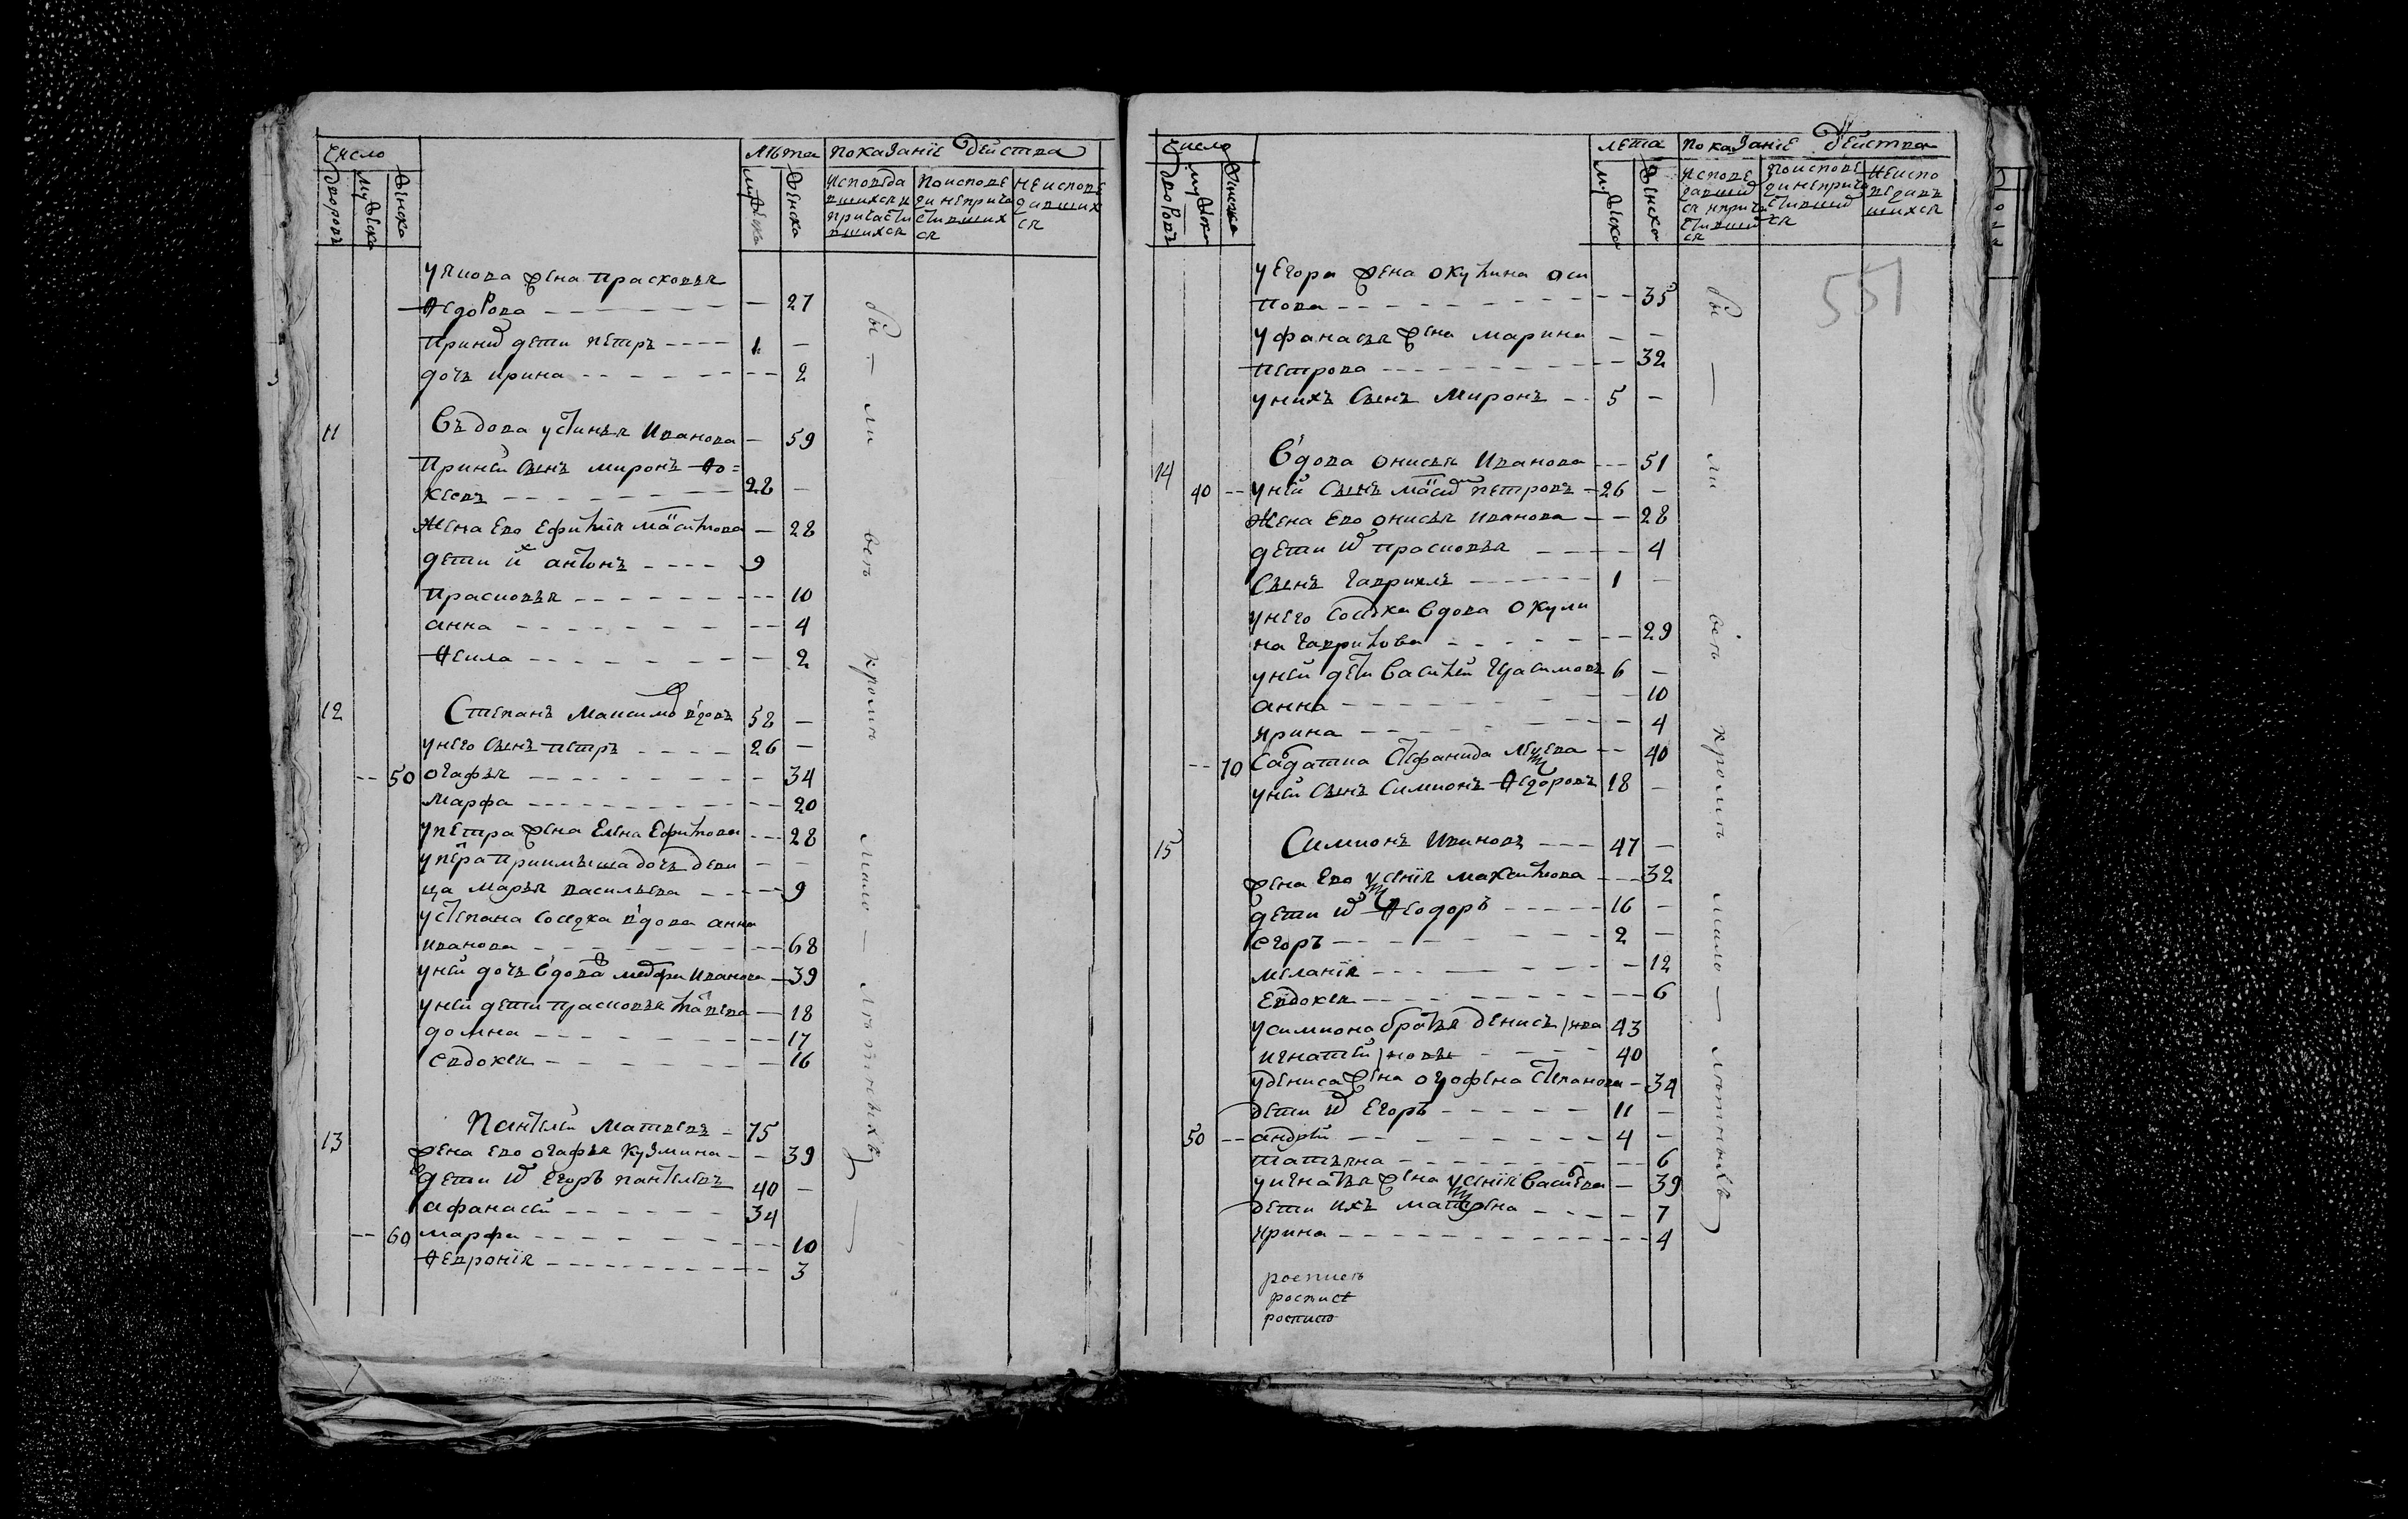 Число
лѣта показаніе действа
дворовъ
мужска
женска
мужска
женска
исповеда
вшихся и
причасти
вшихся
поисповe
ди непріча
стивших
ся
неисповe
давших
ся
у якова жена Прасковья
Ѳедорова — 27
При них дети петръ 1 —
дочь ирина 2
11 Вдова устинья Иванова — 59
При ней сынъ миронъ Фо=
кеевъ 28 —
Жена ево Ефимия Максимова — 28
дети их антонъ 9
Прасковья 10
анна 4
Ѳекла 2
12 Степанъ Максимовъ вдовъ 58 —
у него сынъ петръ 26 —
50 огафья 34
Марфа 20
у петра жена Елена Ефимова 28
у петра приимыша дочь деви — —
ца Марья васильева 9
у степана соседка вдова анна
иванова 68
у ней дочь вдова Иванова 39
у ней дети прасковья 18
домна 17
евдокея 16
13 Пантелей Матвеевъ 75
жена ево огафья Кузмина 39
дети их Егоръ пантелеевъ 40 —
афанасей 34
60 марфа 10
Ѳеврония 3
бы — ли веть кроме мало — летныхъ
число
лета показаніе действа
дворовъ
мужска
женска
мужска
женска
исповe
давших
ся и прича
стивших
ся
поисповe
ди непріча
стивших
ся
Неиспо
ведавъ
шихся
551
у Егора жена окулина оси
пова 35
у фанасья жена марина — —
петрова 32
у нихъ сынъ Миронъ 5 —
14 Вдова онисья Иванова 51
40 у ней сынъ Максим петровъ 26 —
Жена ево онисья Иванова 28
дети их прасковья 4
сынъ гаврилъ 1 —
у него соседка вдова окули
на гаврилова 29
у ней дети Василей Герасимовъ 6 —
анна 10
ярина 4
70 Салдатка Степанида 40
у ней сынъ Симионъ Ѳедоровъ 18 —
15 Симионъ Ивановъ 47 —
жена ево ксения максимова 32
дети их Ѳеодоръ 16 —
егоръ 2 —
мелания 12
Евдокея 6
у симиона братья денисъ ива 43
игнатей новы 40
у дениса жена огрофена степанова 34
дети их Егоръ 11 —
50 андрей 4 —
татьяна 6
у игнатья жена ксения Васильева — 39
дети ихъ матрена 7
ирина 4
роспись
роспись
роспись
бы — ли веть кроме мало — летныхъ